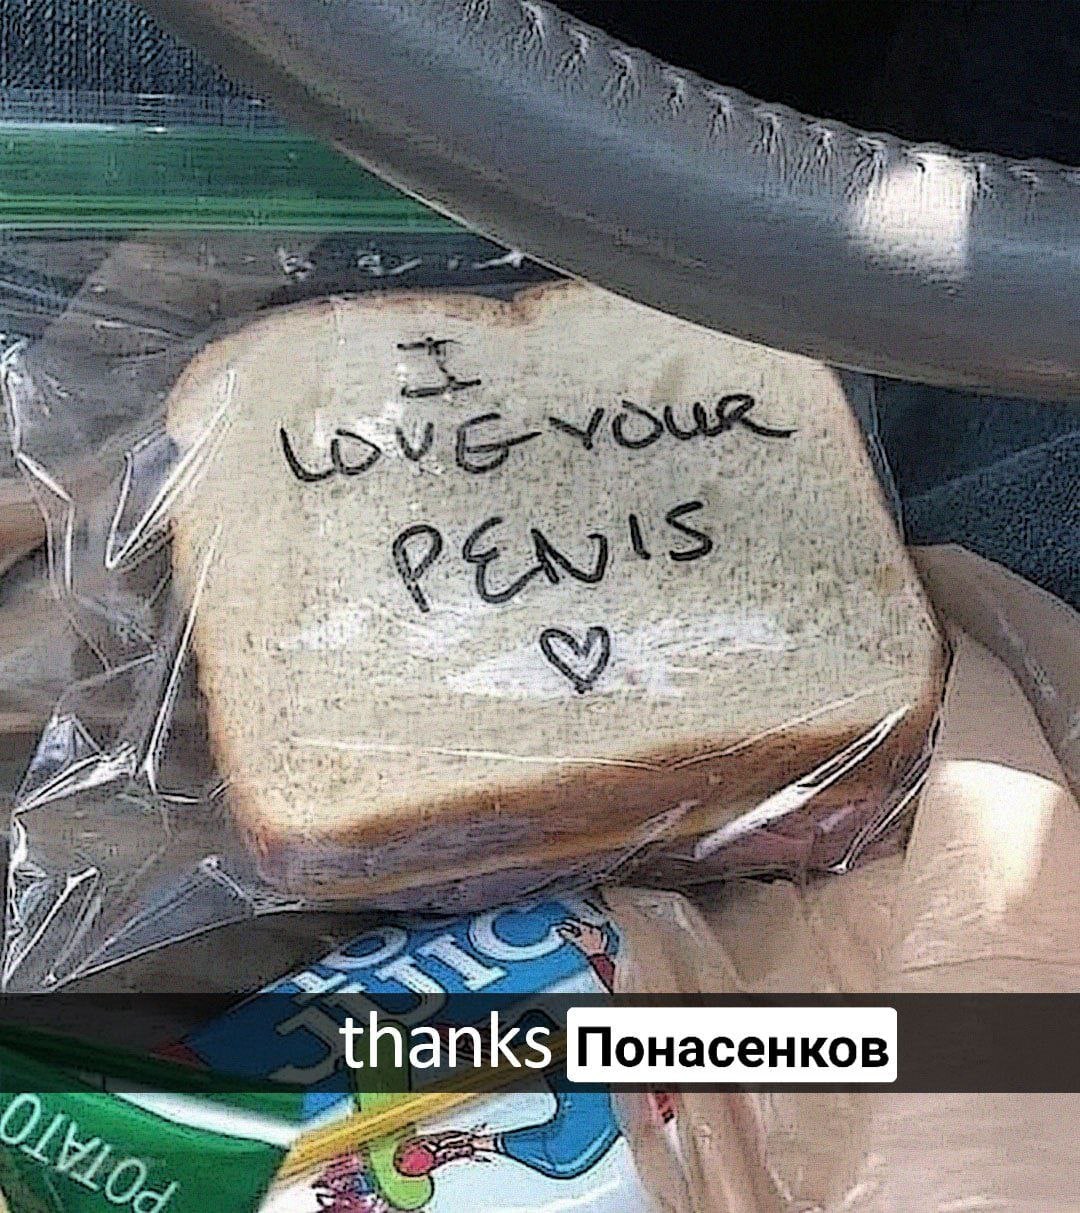 I
LOVE YOUR
PENIS
♡
JUIC
thanks Понасенков
POTATO